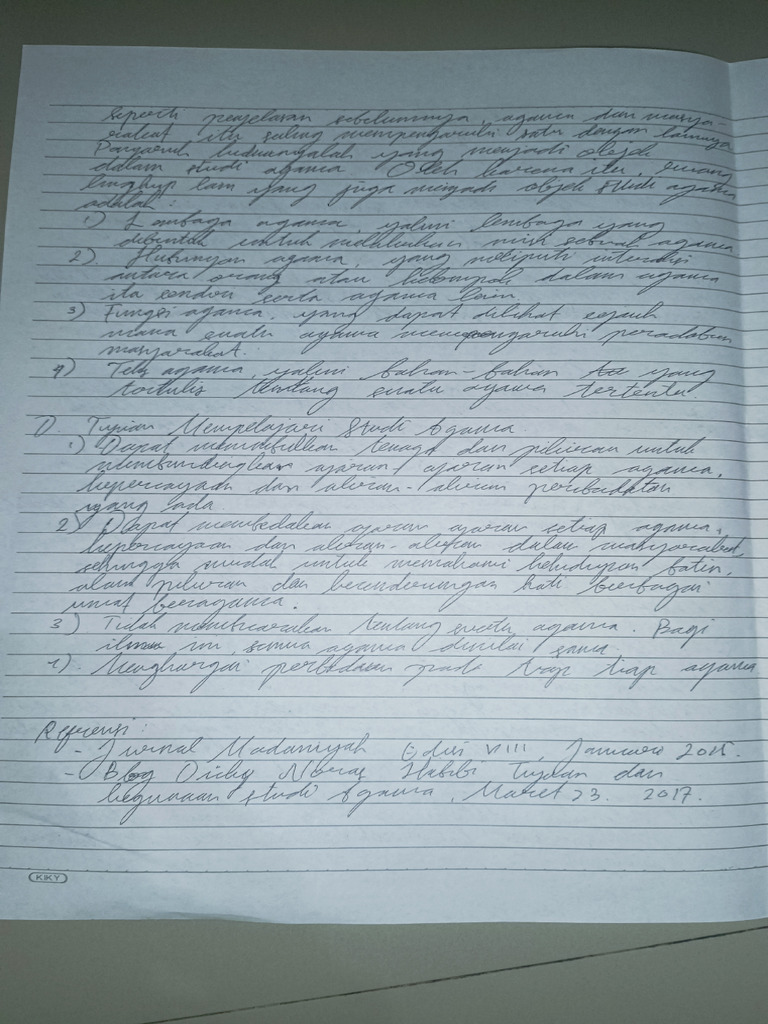 Seperti penjelasan sebelumnya, agama dan masya-
rakat itu saling mempengaruhi satu dengan lainnya
Pengaruh keduanyalah yang menjadi objek
dalam studi agama Oleh karena itu, ruang
lingkup lain yang juga menjadi objek studi agama
adalah :
1) Lembaga agama, yakni lembaga yang
dibentuk untuk melakukan misi agama
2). Hubungan agama, yang meliputi interaksi
antara orang atau kelompok dalam agama
itu sendiri serta agama lain.
3) Fungsi agama, yang dapat dilihat sejauh
mana suatu agama mempengaruhi peradaban
masyarakat.
4) Teks agama, yakni bahan-bahan yang
tertulis tentang suatu agama tertentu.
D. Tujuan Mempelajari Studi Agama
1) Dapat menimbulkan tenaga dan pikiran untuk
membandingkan ajaran-ajaran setiap agama,
kepercayaan dan aliran-aliran peribadatan
yang ada.
2) Dapat membedakan ajaran ajaran setiap agama,
kepercayaan dan aliran-aliran dalam masyarakat,
sehingga mudah untuk memahami kehidupan batin,
alam pikiran dan kecenderungan hati berbagai
umat beragama.
3) Tidak membicarakan tentang suatu agama. Bagi
ilmu ini, semua agama dinilai sama.
4). Menghargai perbedaan pada tiap tiap agama
Referensi :
- Jurnal Madaniyah Edisi VIII, Januari 2015.
- Blog Habibi Tujuan dan
kegunaan studi Agama, Maret 23. 2017.
KIKY